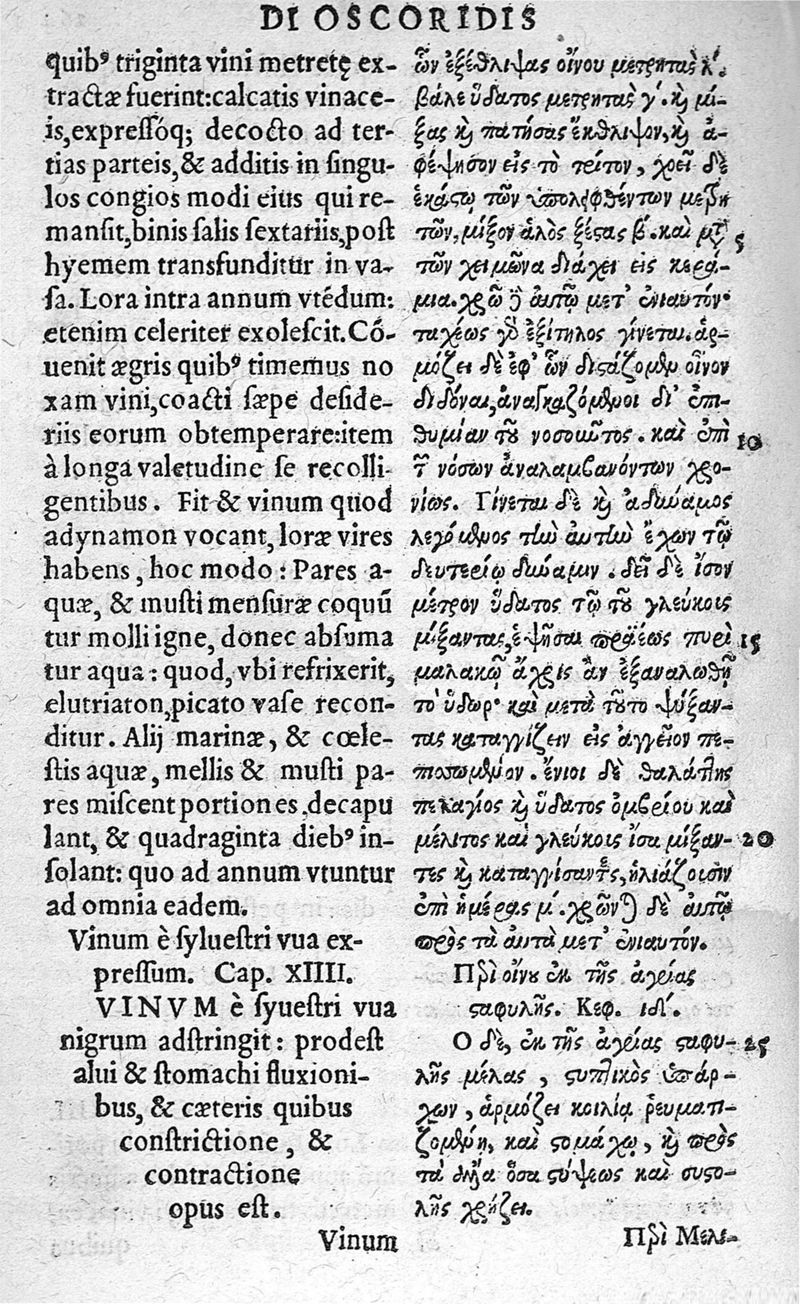 DIOSCORIDIS
quibꝰ triginta vini metretę ex-
tractæ fuerint: calcatis vinace-
is, expressóq; decocto ad ter-
tias parteis, & additis in singu-
los congios modi eius qui re-
mansit, binis salis sextariis, post
hyemem transfunditur in va-
sa. Lora intra annum vtẽdum:
etenim celeriter exolescit. Cõ-
uenit ægris quibꝰ timemus no
xam vini, coacti sæpe deside-
riis eorum obtemperare: item
à longa valetudine se recolli-
gentibus. Fit & vinum quod
adynamon vocant, loræ vires
habens, hoc modo: Pares a-
quæ, & musti mensuræ coquũ
tur molli igne, donec absuma
tur aqua: quod, vbi refrixerit,
elutriaton, picato vase recon-
ditur. Alij marinæ, & cœle-
stis aquæ, mellis & musti pa-
res miscent portiones, decapu
lant, & quadraginta diebꝰ in-
solant: quo ad annum vtuntur
ad omnia eadem.
Vinum è syluestri vua ex-
pressum. Cap. XIIII.
VINVM è syuestri vua
nigrum adstringit: prodest
alui & stomachi fluxioni-
bus, & cæteris quibus
constrictione, &
contractione
opus est.
Vinum
ὧν ἐξέθλιψας οἴνου μετρητὰς λʹ.
βάλε ὕδατος μετρητὰς γʹ. καὶ μί-
ξας καὶ πατήσας ἔκθλιψον, καὶ ἀ-
φέψησον εἰς τὸ τρίτον, χρεῖ δὲ
ἑκάστῳ τῶν ὑπολειφθέντων μετρη
τῶν, μίξον ἁλὸς ξέστας βʹ. καὶ μετὰ 5
τῶν χειμῶνα διάχει εἰς κερά-
μια. χρῶ δὲ αὐτῷ μετ' ἐνιαυτόν·
ταχέως γὰρ ἐξίτηλος γίνεται. ἁρ-
μόζει δὲ ἐφ' ὧν διστάζομεν οἶνον
διδόναι, ἀναγκαζόμενοι δι' ἐπι-
θυμίαν τοῦ νοσοῦντος. καὶ ἐπὶ 10
τῶν νόσων ἀναλαμβανόντων χρο-
νίως. Γίνεται δὲ καὶ ἀδύναμος
λεγόμενος τὴν αὐτὴν ἔχων τῷ
δευτερίῳ δύναμιν. δεῖ δὲ ἴσον
μέτρον ὕδατος τῷ τοῦ γλεύκοις
μίξαντας, ἑψῆσαι πραέως πυρὶ 15
μαλακῷ ἄχρις ἂν ἐξαναλωθῇ
τὸ ὕδωρ· καὶ μετὰ τοῦτο ψύξαν-
τας καταγγίζειν εἰς ἀγγεῖον πε-
πισσωμένον. ἔνιοι δὲ θαλάττης
πελαγίος καὶ ὕδατος ὀμβρίου καὶ
μέλιτος καὶ γλεύκοις ἴσα μίξαν- 20
τες καὶ καταγγίσαντες, ἡλιάζουσιν
ἐπὶ ἡμέρας μʹ. χρῶνται δὲ αὐτῷ
πρὸς τὰ αὐτὰ μετ' ἐνιαυτόν.
Περὶ οἴνου ἐκ τῆς ἀγρίας
σταφυλῆς. Κεφ. ιδʹ.
Ο δὲ, ἐκ τῆς ἀγρίας σταφυ- 25
λῆς μέλας, στυπτικὸς ὑπάρ-
χων, ἁρμόζει κοιλίᾳ ῥευματι-
ζομένῃ, καὶ στομάχῳ, καὶ πρὸς
τὰ ἄλλα ὅσα στύψεως καὶ συστο-
λῆς χρῄζει.
Περὶ Μελι-